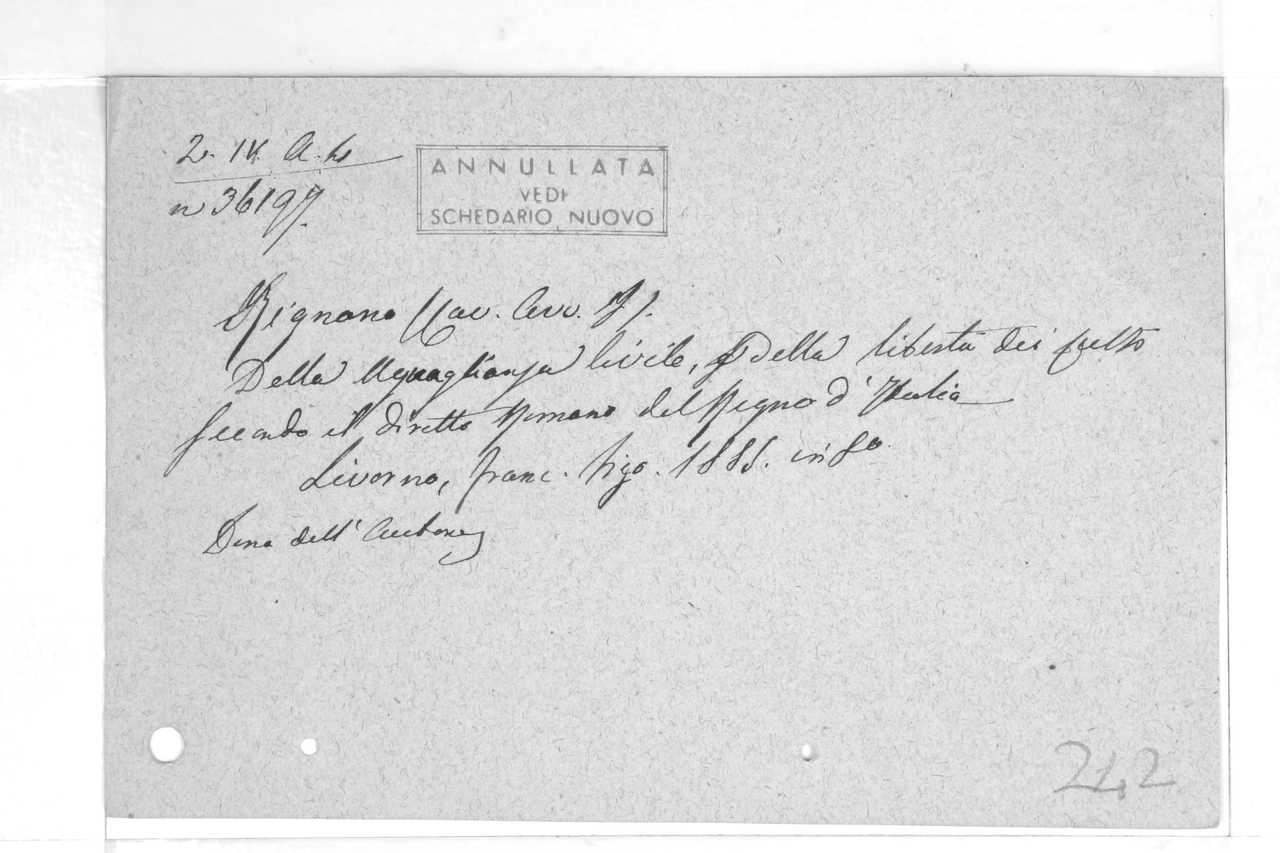 2. IV. A.
n 36197.
ANNULLATA
VEDI
SCHEDARIO NUOVO
Rignano (Cav. Avv. I).
Della Uguaglianza Civile, e Della libertà dei culti
secondo il diritto Romano del Regno d'Italia
Livorno, franc. Vigo. 1885. in 8º
Dono dell'Autore
242